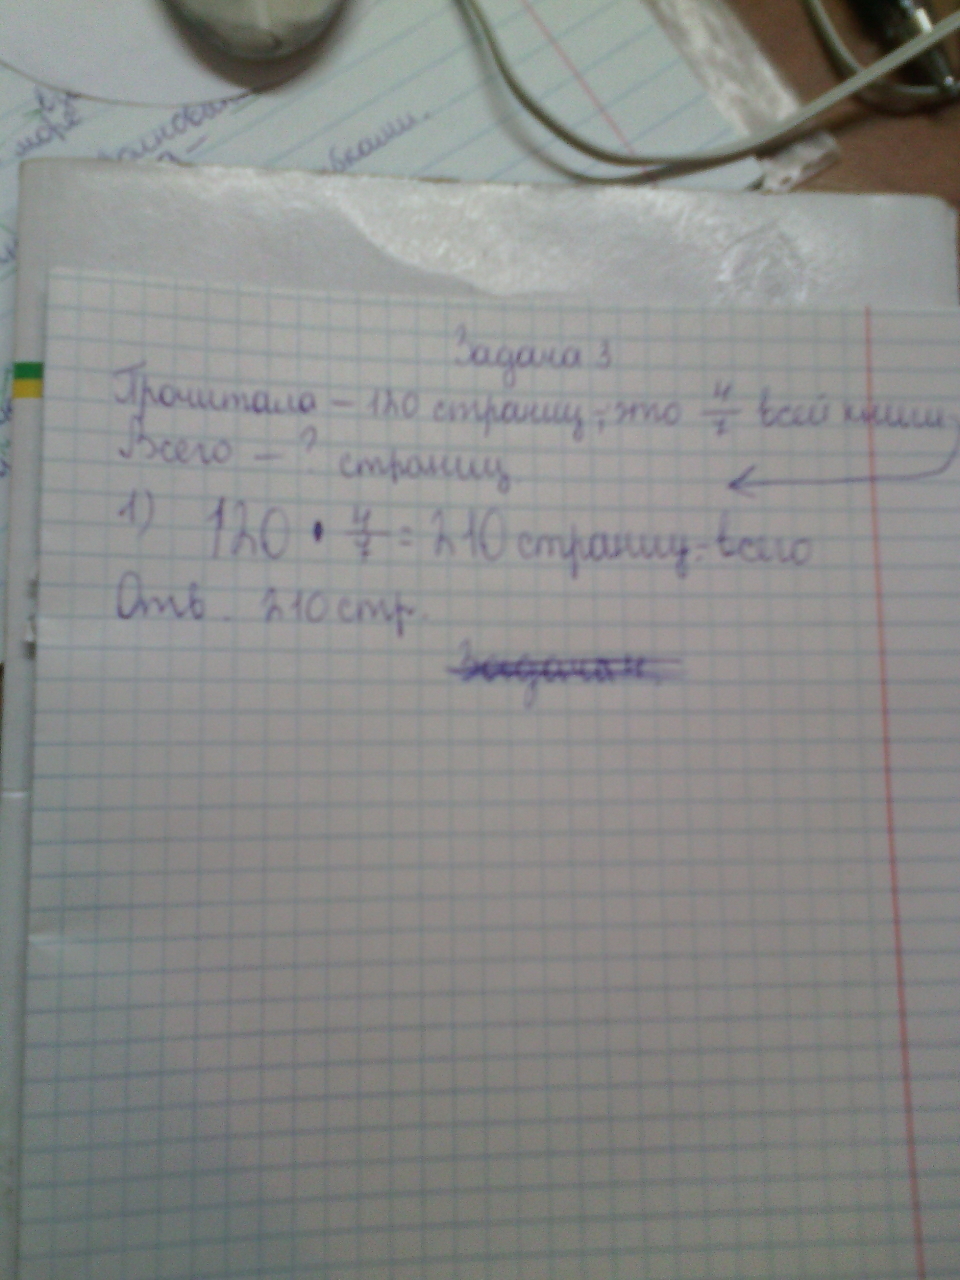 море
бками.
Задача 3
Прочитала – 120 страниц, это 4/7 всей книги
Всего – ? страниц.
1) 120 · 4/7 = 210 страниц - всего
Отв. 210 стр.
Задача 4.